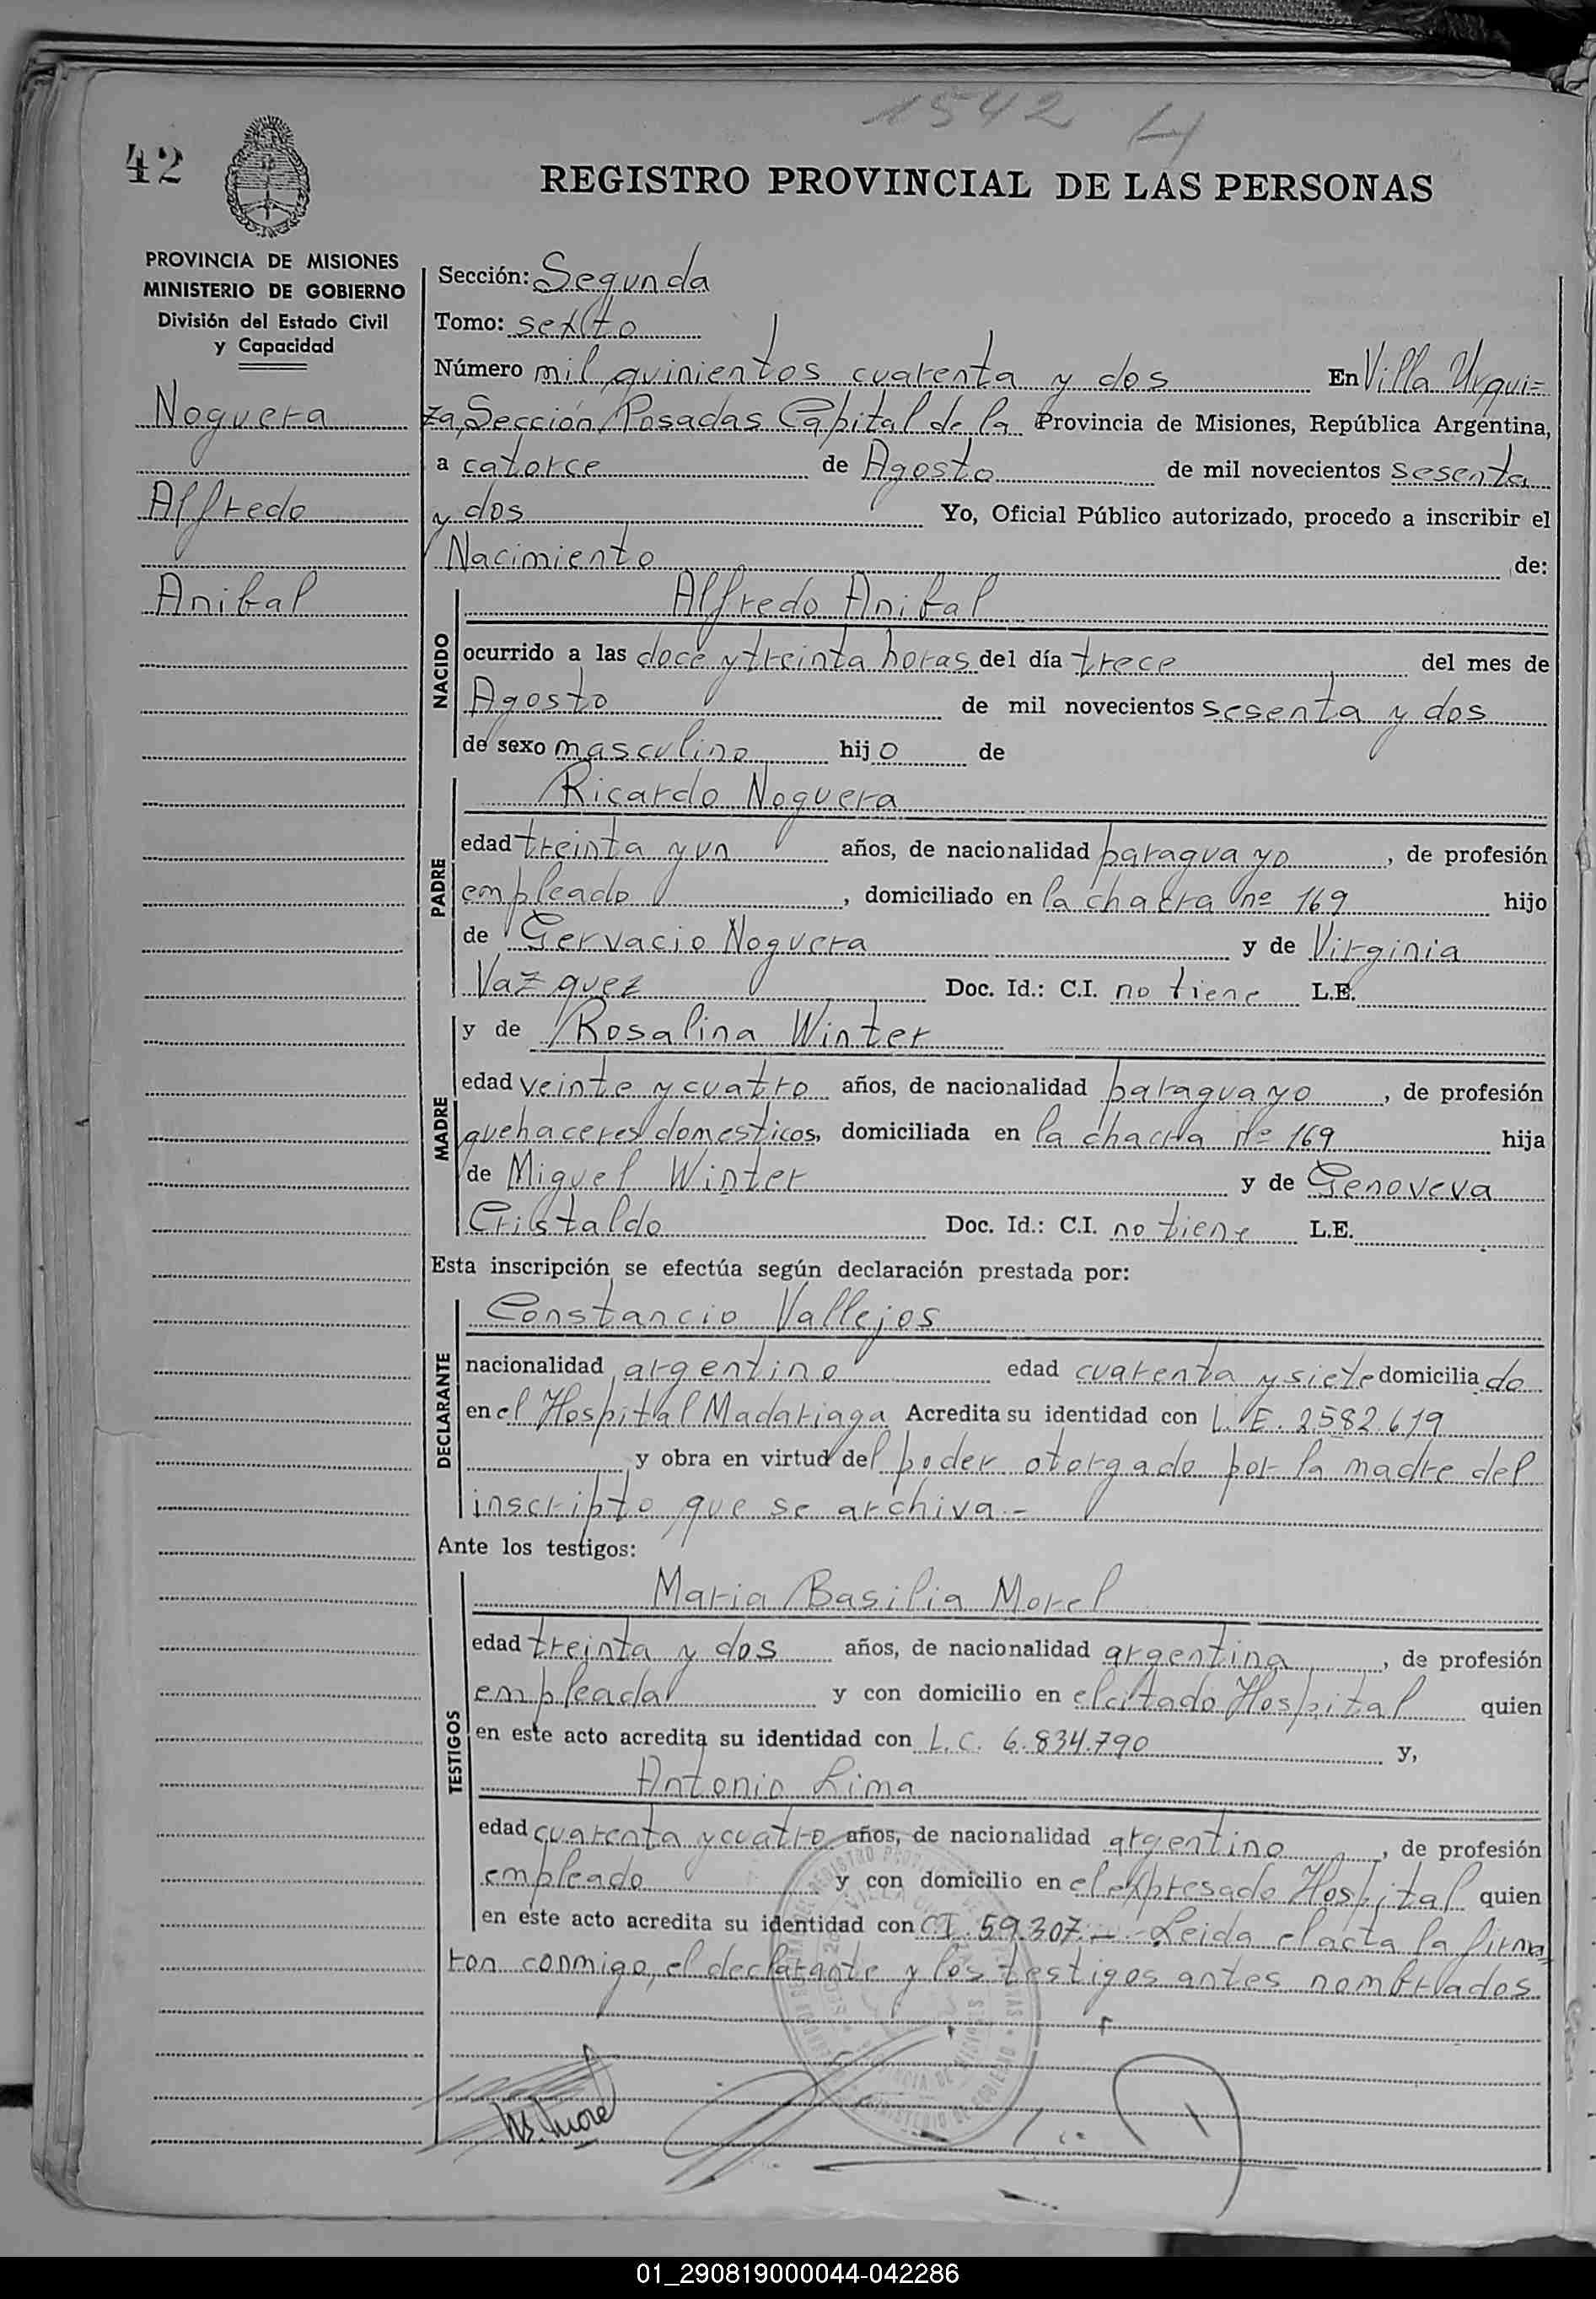 1542 H
42
REGISTRO PROVINCIAL DE LAS PERSONAS
PROVINCIA DE MISIONES
MINISTERIO DE GOBIERNO
División del Estado Civil
y Capacidad
Noguera
Alfredo
Anibal
Sección: Segunda
Tomo: sexto
Número mil quinientos cuarenta y dos En Villa Urqui=
za, Sección Posadas Capital de la Provincia de Misiones, República Argentina,
a catorce de Agosto de mil novecientos sesenta
y dos Yo, Oficial Público autorizado, procedo a inscribir el
Nacimiento de:
NACIDO
Alfredo Anibal
ocurrido a las doce y treinta horas del día trece del mes de
Agosto de mil novecientos sesenta y dos
de sexo masculino hijo de
PADRE
Ricardo Noguera
edad treinta y un años, de nacionalidad paraguayo, de profesión
empleado, domiciliado en la chacra nº 169 hijo
de Gervacio Noguera y de Virginia
Vazquez Doc. Id.: C.I. no tiene L.E.
MADRE
y de Rosalina Winter
edad veinte y cuatro años, de nacionalidad paraguayo, de profesión
quehaceres domesticos, domiciliada en la chacra nº 169 hija
de Miguel Winter y de Genoveva
Cristaldo Doc. Id.: C.I. no tiene L.E.
Esta inscripción se efectúa según declaración prestada por:
DECLARANTE
Constancio Vallejos
nacionalidad argentino edad cuarenta y siete domiciliado
en el Hospital Madariaga Acredita su identidad con L.E. 2582.619
y obra en virtud del poder otorgado por la madre del
inscripto que se archiva.-
Ante los testigos:
TESTIGOS
Maria Basilia Morel
edad treinta y dos años, de nacionalidad argentina, de profesión
empleada y con domicilio en el citado Hospital quien
en este acto acredita su identidad con L.C. 6.834.790 y,
Antonio Lima
edad cuarenta y cuatro años, de nacionalidad argentino, de profesión
empleado y con domicilio en el expresado Hospital quien
en este acto acredita su identidad con C.I. 59.307.- Leida el acta la firma=
ron conmigo, el declarante y los testigos antes nombrados
01_290819000044-042286